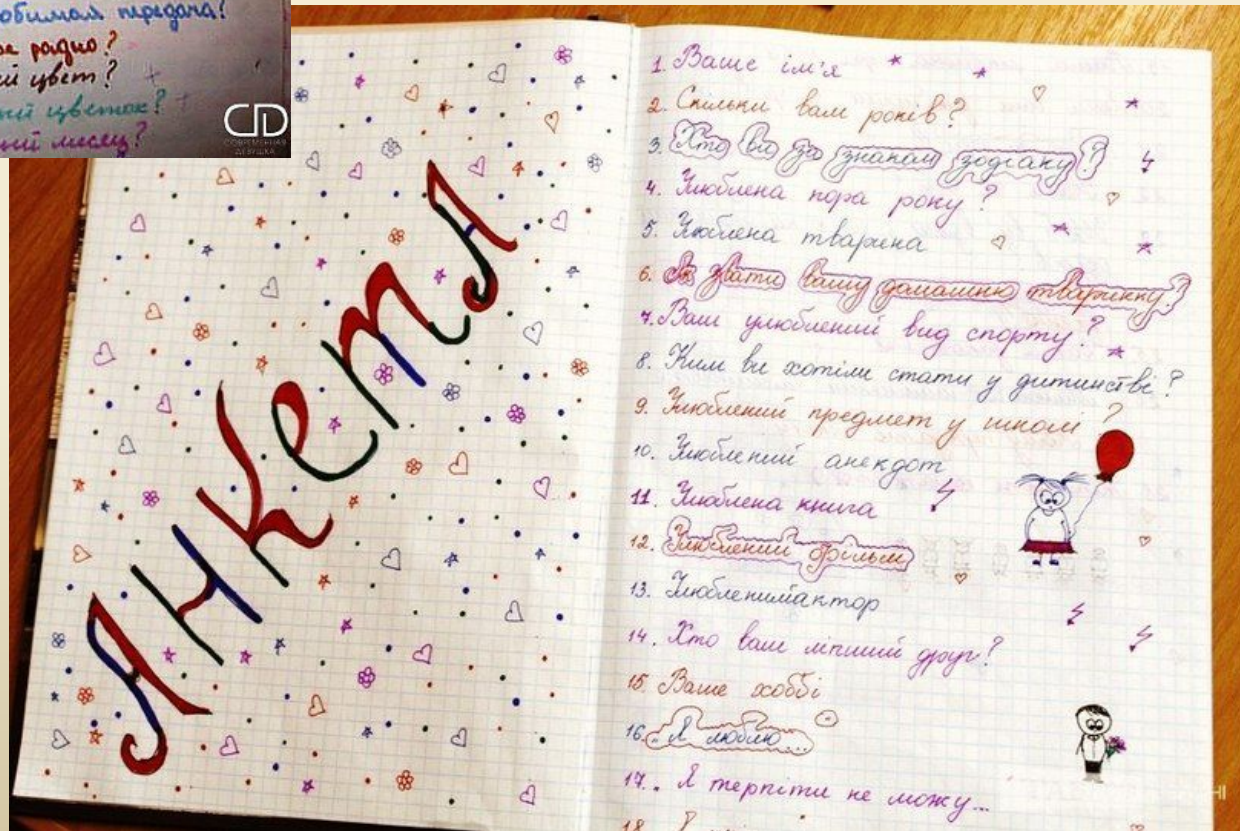 передача?
радио?
цвет?
цветок?
месяц?
CD
СОВРЕМЕННАЯ
ДЕВУШКА
АНКеТА
1. Ваше ім'я
2. Скільки вам років?
3. Хто ви за знаком зодіаку?
4. Улюблена пора року?
5. Улюблена тварена
6. Як звати вашу домашню тваринку?
7. Ваш улюблений вид спорту?
8. Ким ви хотіли стати у дитинстві?
9. Улюблений предмет у школі?
10. Улюблений анекдот
11. Улюблена книга
12. Улюблений фільм
13. Улюбленийактор
14. Хто ваш ліпший друг?
15. Ваше хоббі
16. Я люблю...
17. Я терпіти не можу...
18.
НІ